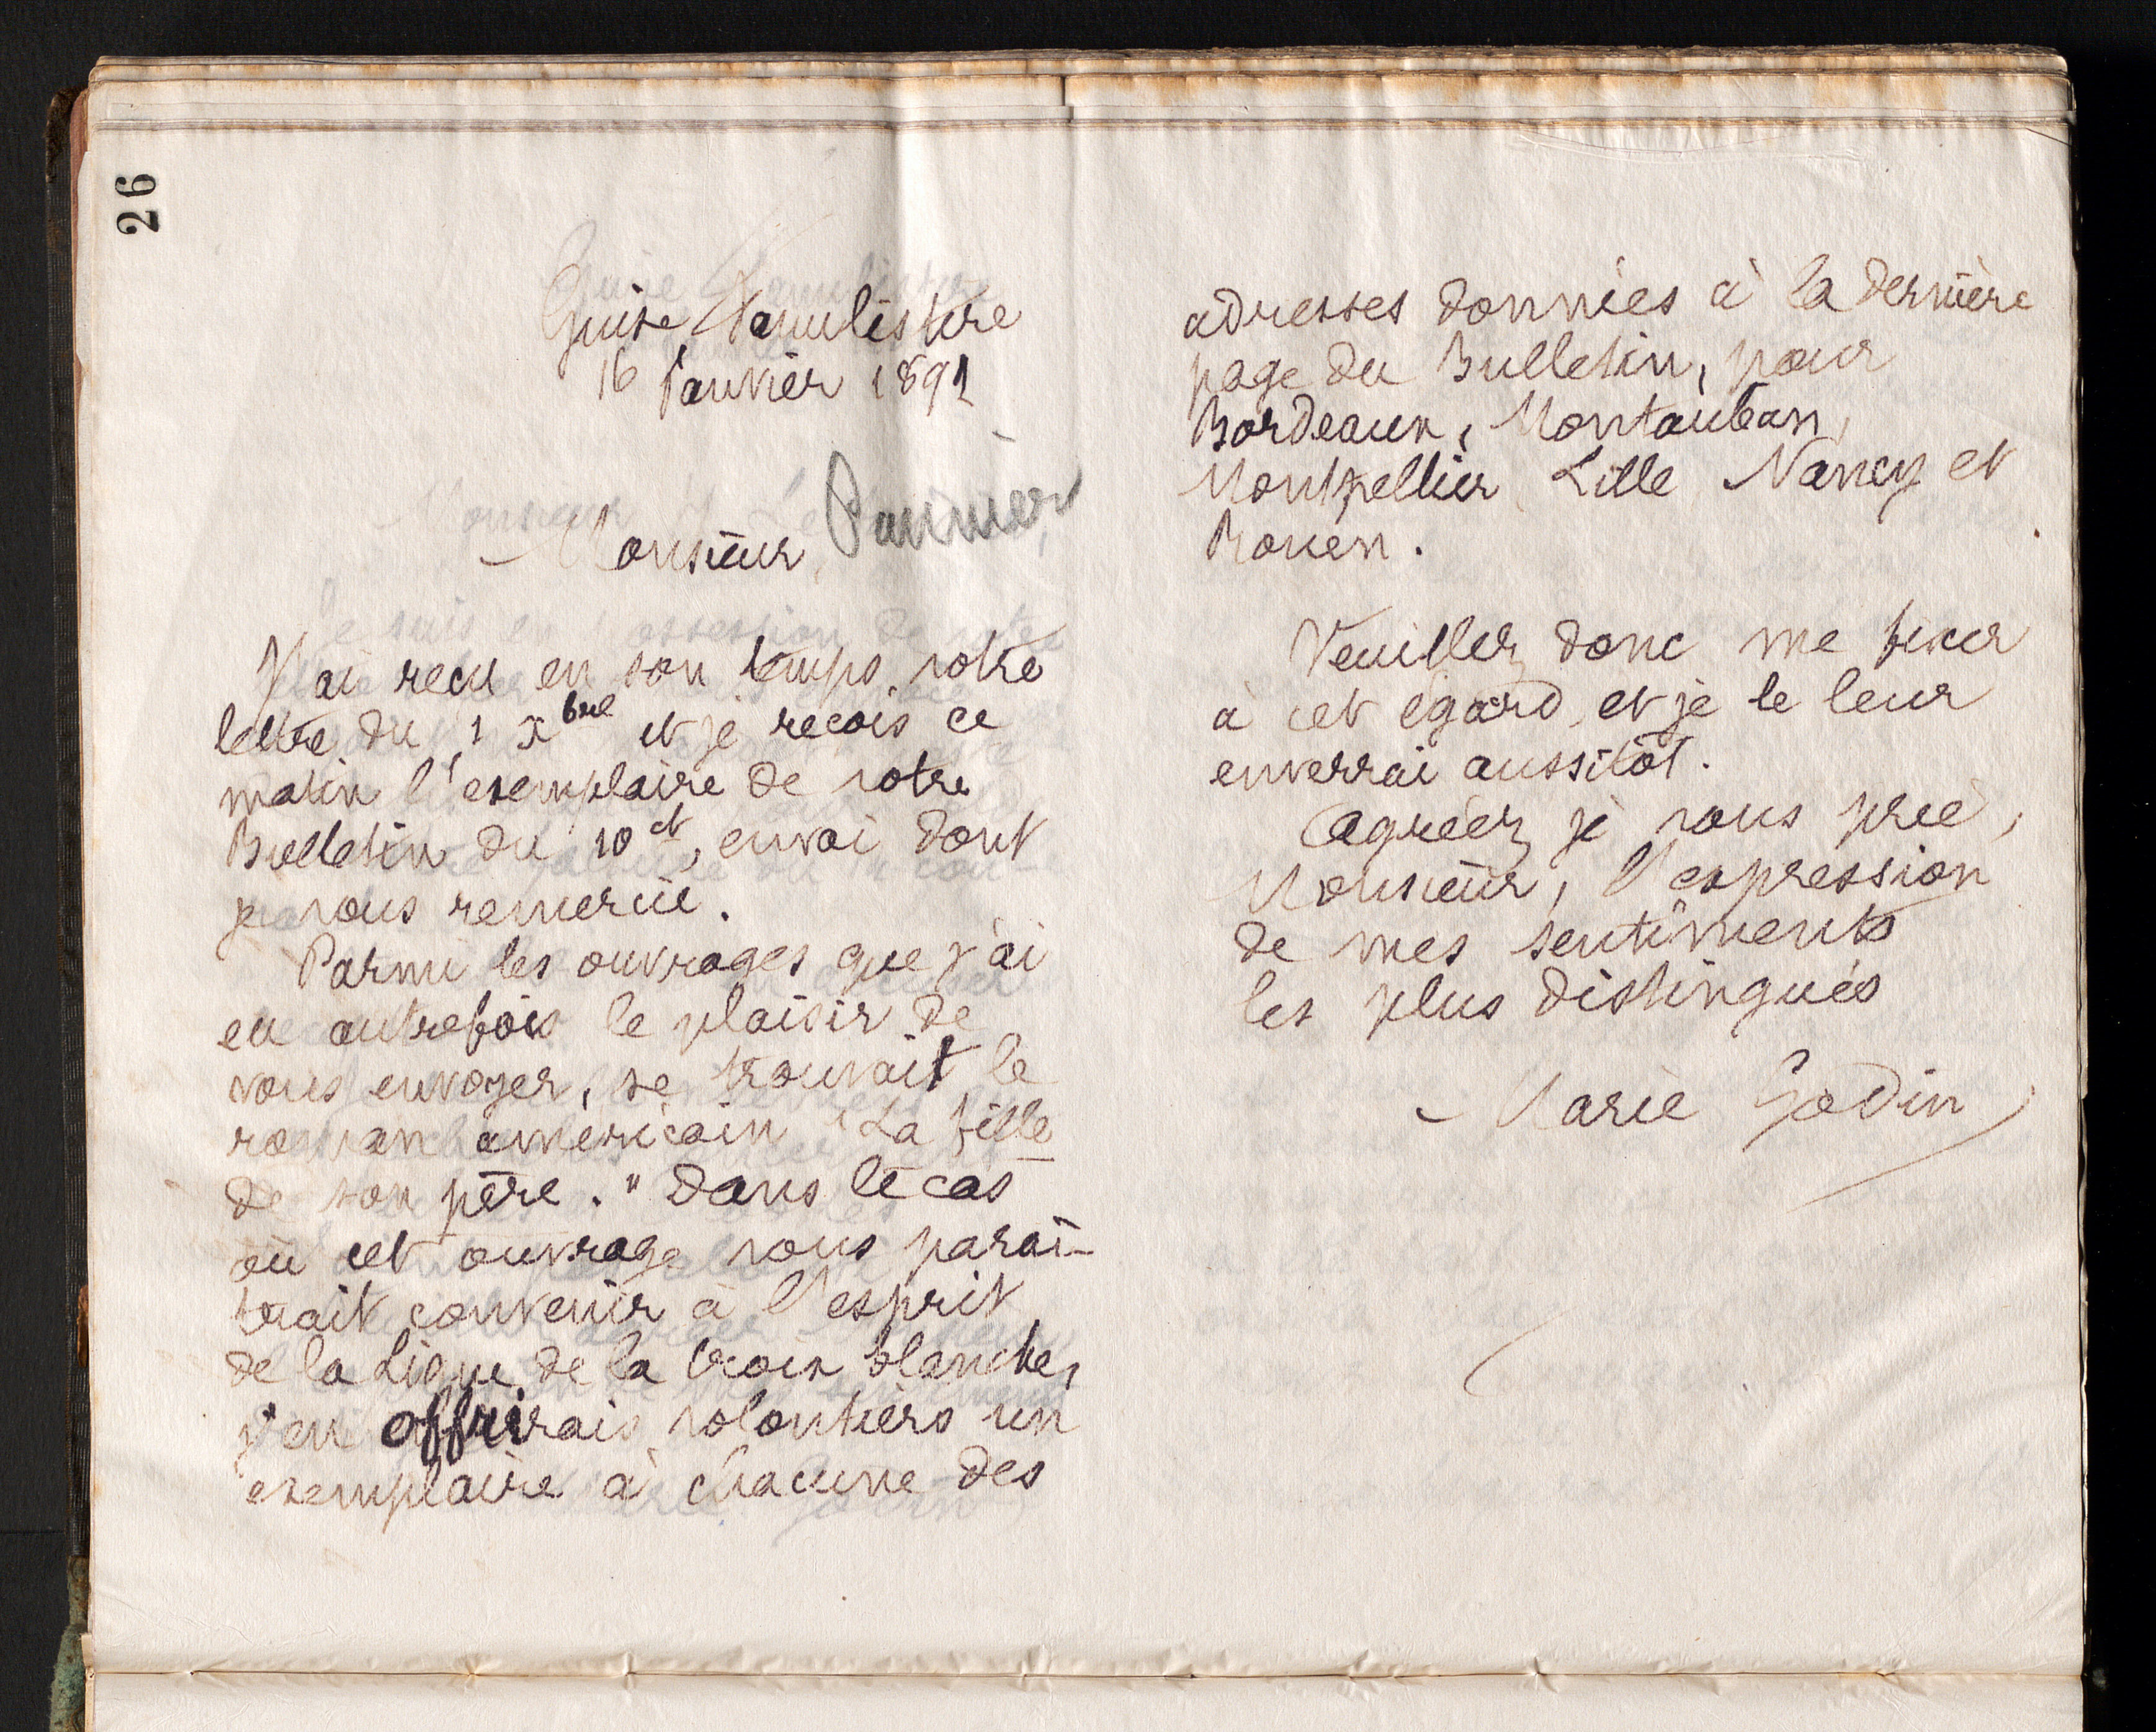 26
Guise Familistère
16 Janvier 1891
Monsieur, Pannier
J'ai reçu en son temps votre
lettre du 1 xbre et je reçois ce
matin l'exemplaire de votre
Bulletin du 10 ct, envoi dont
je vous remercie.
Parmi les ouvrages que j'ai
eu autrefois le plaisir de
vous envoyer, se trouvait le
roman américain "La fille
de son père." Dans le cas
où cet ouvrage vous paraî-
trait convenir à l'esprit
de la Ligue de la Croix blanche,
j'en offrirais volontiers un
exemplaire à chacune des
adresses données à la dernière
page du Bulletin, pour
Bordeaux, Montauban,
Montpellier, Lille, Nancy et
Rouen.
Veuillez donc me fixer
à cet égard, et je le leur
enverrai aussitôt.
Agréez, je vous prie,
Monsieur, l'expression
de mes sentiments
les plus distingués
Marie Godin